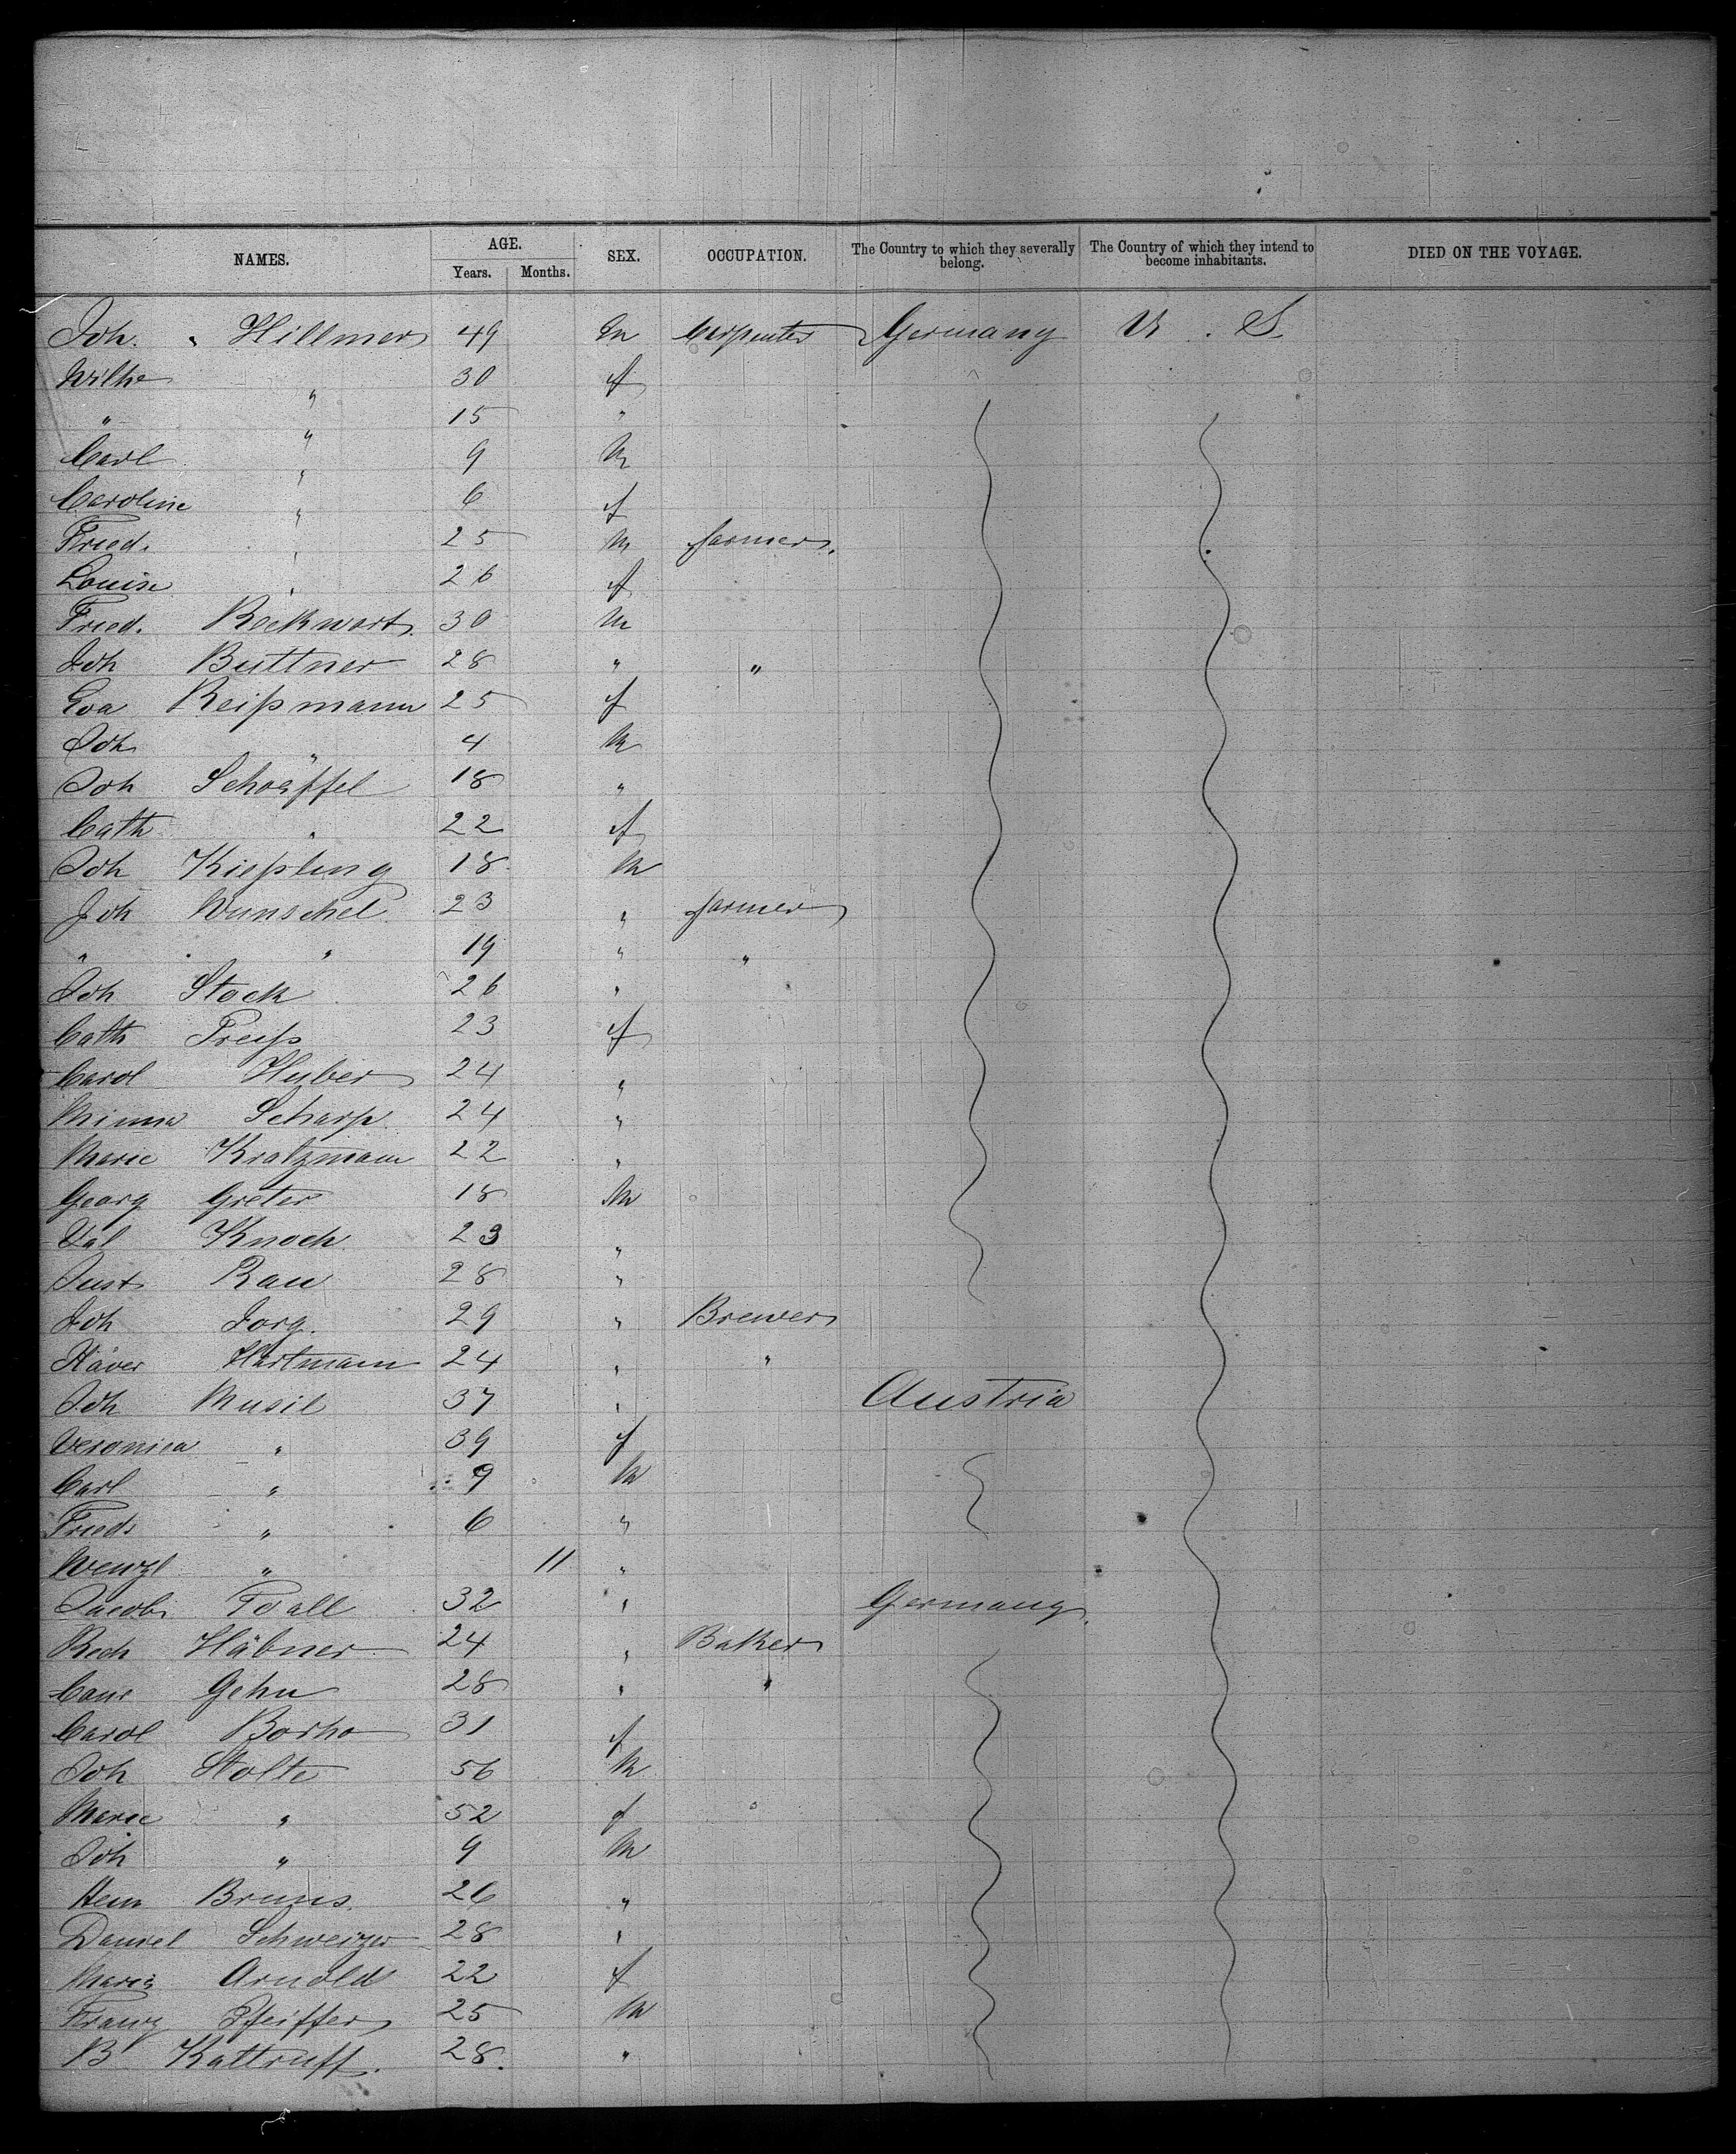 NAMES. AGE. SEX. OCCUPATION. The Country to which they severally belong. The Country of which they intend to become inhabitants. DIED ON THE VOYAGE.
Years. Months.
Joh. " Hillmer 49 m Carpenter Germany U. S.
Wilhe " 30 f
" " 15 "
Carl " 9 M
Caroline " 6 f
Fried. " 25 M farmer.
Louise " 26 f
Fried. Rockwart. 30 M
Joh Buttner 28 " "
Eva Reißmann 25 f
Joh " 4 M
Joh Schoäffel 18 "
Cath " 22 f
Joh Kießling 18 M
Joh Wunschel 23 " farmer
" " 19 " "
Joh Stock 26 "
Cath Preiß 23 f
Carol Huber 24 "
Minna Scharp 24 "
Marie Kratzmann 22 "
Georg Greter 18 M
Val Knoch 23 "
Just Rau 28 "
Joh Jorg. 29 " Brewer
Xaver Hartmann 24 " "
Joh Musil 37 " Austria
Veronica " 39 f
Carl " 9 M
Friedr " 6 "
Wenzl " 11 "
Jacob 32 " Germany.
Rich Häbner 24 " Baker
Gehn 28 " "
Carol Borho 31 f
Joh Stolte 56 M
Marie " 52 f
Joh " 9 M
Hein Bruns. 26 "
Daniel Schweizer 28 "
Maria Arnold 22 f
Franz Pfeiffer 25 M
B Kattruff. 28. "